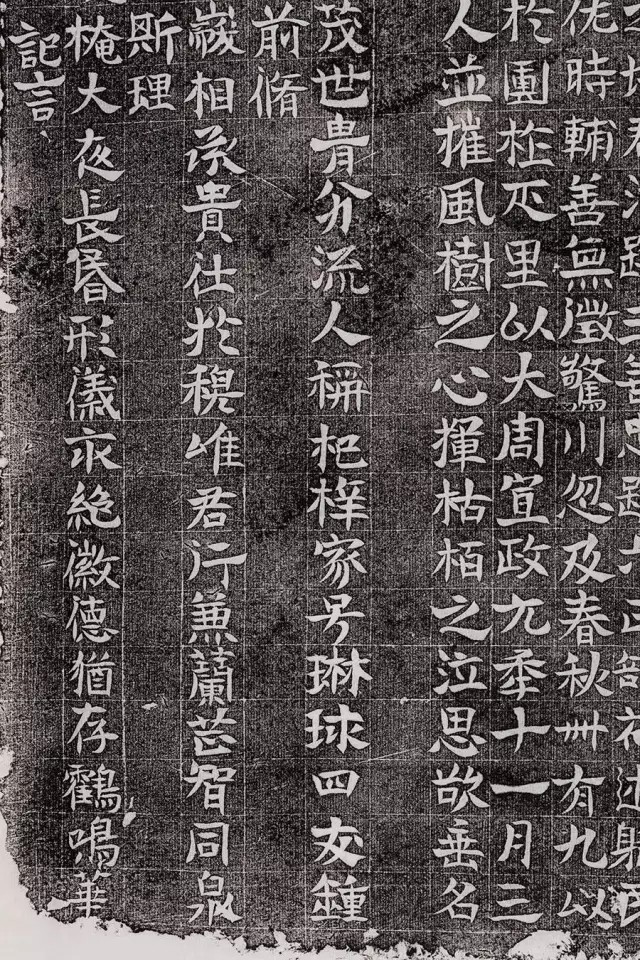 三善思題六正
時輔善無徵驚川忽及春秋卌有九以
於團柱丕里以大周宣政元秊十一月三
人並摧風樹之心揮枯栢之泣思欲垂名
茂世胄分流人稱杞梓家号琳球四友鍾
前脩
歲相承貴仕於穆唯君行兼蘭芷智同泉
斯理
掩大夜長昏形儀永絶徽德猶存鸛鳴華
記言